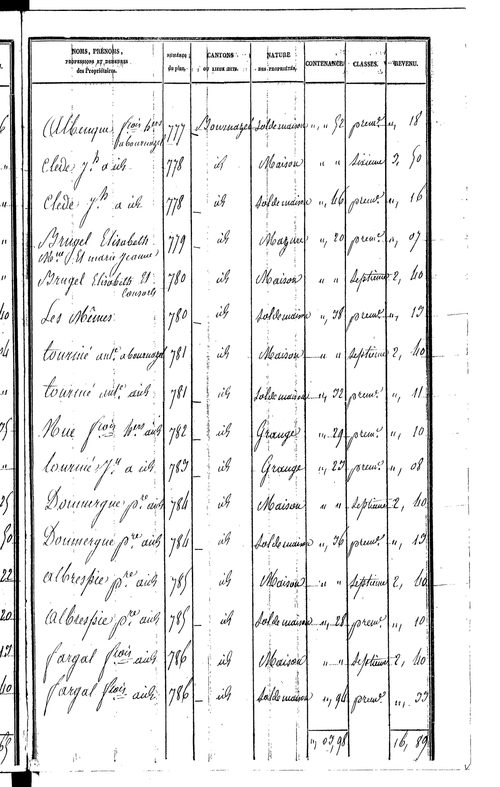 NOMS, PRÉNOMS, PROFESSIONS ET DEMEURES des Propriétaires. NUMÉROS du plan. CANTONS OU LIEUX DITS. NATURE DES PROPRIÉTÉS. CONTENANCES. CLASSES. REVENU.
Albenque frois hers a bournazel 777 Bournazel Sol de maison " " 52 prem. " 18
Clede jh a id. 778 id Maison " " sixieme 3, 50
Clede jh a id 778 id Sol de maison " 46 prem. " 16
Brugel Elisabeth Mie et marie jeanne 779 id Mazure " 20 prem. " 07
Brugel Elisabeth et Consorts 780 id Maison " " Septieme 2, 40
Les Mêmes 780 id Sol de maison " 38 prem. " 13
tournié ante a bournazel 781 id Maison " " Septieme 2, 40
tournié ante aud 781 id Sol de maison " 32 prem. " 11
Nue frois hers aud 782 id Grange " 29 prem. " 10
tournié a id 783 id Grange " 23 prem. " 08
Doumergue pre aud 784 id Maison " " Septieme 2, 40
Doumergue pre aud 784 id Sol de maison " 36 prem. " 13
albrespie pre aud 785 id Maison " " Septieme 2, 40
albrespie pre aud 785 id Sol de maison " 28 prem. " 10
fargal frois aud 786 id Maison " " Septieme 2, 40
fargal frois aud 786 id Sol de maison " 94 prem. " 33
" 03, 98 16, 89